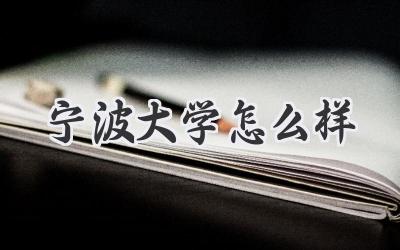 宁波大学怎么样